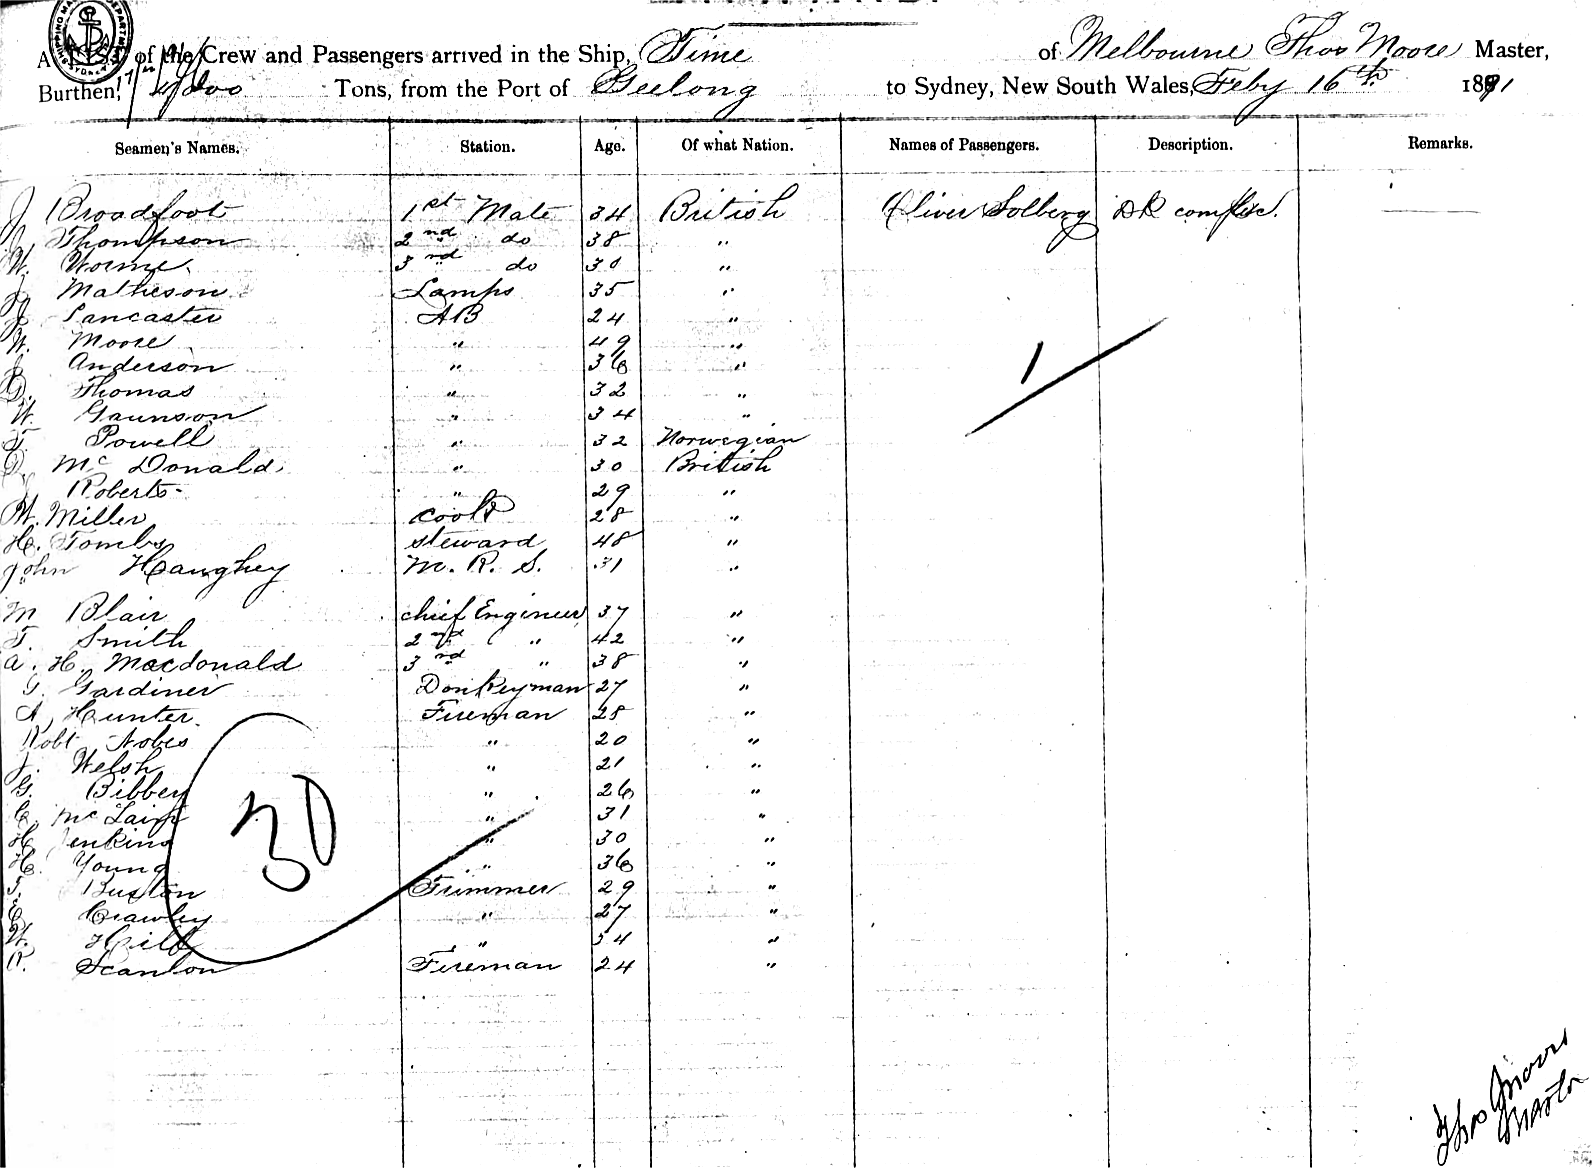 A List of the Crew and Passengers arrived in the Ship, Time of Melbourne Thos Moore Master,
Burthen, Tons, from the Port of Geelong to Sydney, New South Wales, Feby 16th 1891
Seamen's Names. Station. Age. Of what Nation. Names of Passengers. Description. Remarks.
J Broadfoot 1st Mate 34 British Oliver Solberg DR
J Thompson 2nd do 38 "
W. Worme 3rd do 30 "
J Matheson Lamps 35 "
J Lancaster AB 24 "
W. Moore " 49 "
J Anderson " 36 "
D. Thomas " 32 "
W. Gaunson " 34 "
T. Powell " 32 Norwegian
D. Mc Donald " 30 British
Roberts " 29 "
W. Miller Cook 28 "
H. Tombs steward 48 "
John Haughey M. R. S. 31 "
M Blair chief Engineer 37 "
T. Smith 2nd " 42 "
A. H. Macdonald 3rd " 38 "
G. Gardiner Donkeyman 27 "
A. Hunter Fireman 28 "
Robt Nobes " 20 "
J. Welsh " 21 "
G. Bibbey " 26 "
C. Mc Lain " 31 "
H Jenkins " 30 "
H. Young " 36 "
T. Buxton Trimmer 29 "
C. Crawley " 27 "
W. Hill " 34 "
R. Scanlon Fireman 24 "
30
1
Thos Moore
Master